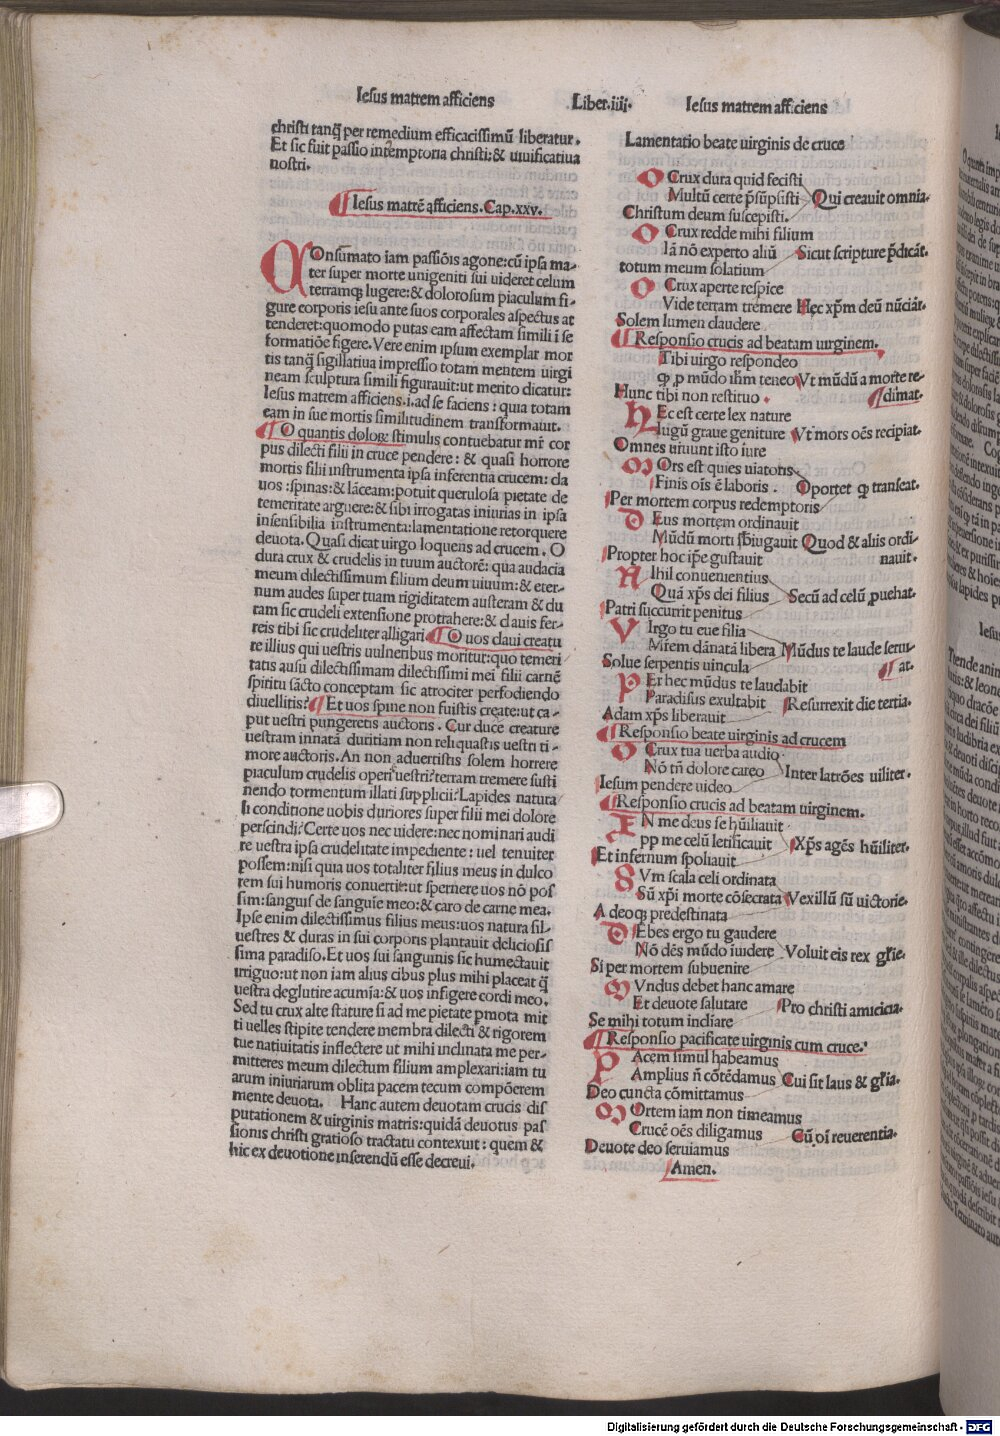 Iesus matrem afficiens Liber.iiij. Iesus matrem afficiens
christi tanq̃ per remedium efficacissimũ liberatur.
Et sic fuit passio intemptoria christi:& uiuificatiua
nostri.
Iesus matrẽ afficiens.Cap.xxv.
COnsumato iam passiõis agone:cũ ipsa ma-
ter super morte unigeniti sui uideret celum
terramq; lugere:& dolorosum piaculum fi-
gure corporis iesu ante suos corporales aspectus at
tenderet:quomodo putas eam affectam simili ĩ se
formatiõe figere.Vere enim ipsum exemplar mor
tis tanq̃ sigillatiua impressio totam mentem uirgi
neam sculptura simili figurauit:ut merito dicatur:
Iesus matrem afficiens.i.ad se faciens: quia totam
eam in sue mortis similitudinem transformauit.
O quantis dolog: stimulis contuebatur mr̃ cor
pus dilecti filii in cruce pendere: & quasi horrore
mortis filii instrumenta ipsa inferentia crucem: da
uos:spinas:& lãceam:potuit querulosa pietate de
temeritate arguere:& sibi irrogatas iniurias in ipsa
insensibilia instrumenta:lamentatione retorquere
deuota. Quasi dicat uirgo loquens ad crucem. O
dura crux & crudelis in tuum auctorẽ: qua audacia
meum dilectissimum filium deum uiuum:& eter-
num audes super tuam rigiditatem austeram & du
ram sic crudeli extensione protrahere:& clauis fer-
reis tibi sic crudeliter alligari. O uos claui creatu
re illius qui uestris uulneribus moritur:quo temeri
tatis ausu dilectissimam dilectissimi mei filii carnẽ
spiritu sãcto conceptam sic atrociter perfodiendo
diuellitis? Et uos spine non fuistis create:ut ca-
put uestri pungeretis auctoris. Cur ducẽ creature
uestram innatã duritiam non reliquastis uestri ti-
more auctoris.An non aduertistis solem horrere
piaculum crudelis operi uestri?terram tremere susti
nendo tormentum illati supplicii?Lapides natura
li conditione uobis duriores super filii mei dolore
perscindi?Certe uos nec uidere:nec nominari audi
re uestra ipsa crudelitate impediente: uel tenuiter
possem:nisi quia uos totaliter filius meus in dulco
rem sui humoris conuertit:ut spernere uos nõ pos
sim:sanguis de sanguie meo:& caro de carne mea.
Ipse enim dilectissimus filius meus:uos natura sil-
uestres & duras in sui corporis plantauit deliciosis
sima paradiso.Et uos sui sanguinis sic humectauit
irriguo:ut non iam alius cibus plus mihi placeat q̃
uestra deglutire acumĩa:& uos infigere cordi meo.
Sed tu crux alte stature si ad me pietate pmota mit
ti uelles stipite tendere membra dilecti & rigorem
tue natiuitatis inflectere ut mihi inclinata me per-
mitteres meum dilectum filium amplexari:iam tu
arum iniuriarum oblita pacem tecum compõerem
mente deuota. Hanc autem deuotam crucis dis
putationem & uirginis matris:quidã deuotus pas
sionis christi gratioso tractatu contexuit : quem &
hic ex deuotione inserendũ esse decreui.
Lamentatio beate uirginis de cruce
O Crux dura quid fecisti
Multũ certe p̃sũpsisti Qui creauit omnia.
Christum deum suscepisti.
O Crux redde mihi filium
Iã nõ experto aliũ Sicut scripture p̃dicãt.
totum meum solatium
O Crux aperte respice
Vide terram tremere Hec xp̃m deũ nũciãt.
Solem lumen claudere
Responsio crucis ad beatam uirginem.
Tibi uirgo respondeo
qp p mũdo ihm̃ teneo Vt mũdũ a morte re-
Hunc tibi non restituo . dimat.
HEc est certe lex nature
Iugũ graue geniture Vt mors oẽs recipiat.
Omnes uiuunt isto iure
MOrs est quies uiatoris
Finis oĩs ẽ laboris . Oportet qp transeat.
Per mortem corpus redemptoris
DEus mortem ordinauit
Mũdũ morti sb̃iugauit Quod & aliis ordi-
Propter hoc ip̃e gustauit nauit.
NIhil conuenientius
Quã xp̃s dei filius Secũ ad celũ puehat.
Patri succurrit penitus
VIrgo tu eue filia
Mr̃em dãnatã libera Mũdus te laude serui-
Solue serpentis uincula at.
PEr hec mũdus te laudabit
Paradisus exultabit Resurrexit die tertia.
Adam xp̃s liberauit
Responsio beate uirginis ad crucem
O Crux tua uerba audio
Nõ tñ dolore careo Inter latrões uiliter.
Iesum pendere uideo
Responsio crucis ad beatam uirginem.
IN me deus se hũiliauit
pp me celũ letificauit Xp̃s agẽs hũiliter.
Et infernum spoliauit
SVm scala celi ordinata
Sũ xp̃i morte cõsecrata Vexillũ sũ uictorie.
A deoq; predestinata
DEbes ergo tu gaudere
Nõ dẽs mũdo iuidere Voluit eis rex gl̃ie.
Si per mortem subuenire
MVndus debet hanc amare
Et deuote salutare Pro christi amicicia.
Se mihi totum incliare
Responsio pacificate uirginis cum cruce.
PAcem simul habeamus
Amplius ñ cõtẽdamus Cui sit laus & gl̃ia.
Deo cuncta cõmittamus
MOrtem iam non timeamus
Crucẽ oẽs diligamus Cũ oĩ reuerentia.
Deuote deo seruiamus
Amen.
Digitalisierung gefördert durch die Deutsche Forschungsgemeinschaft - DFG